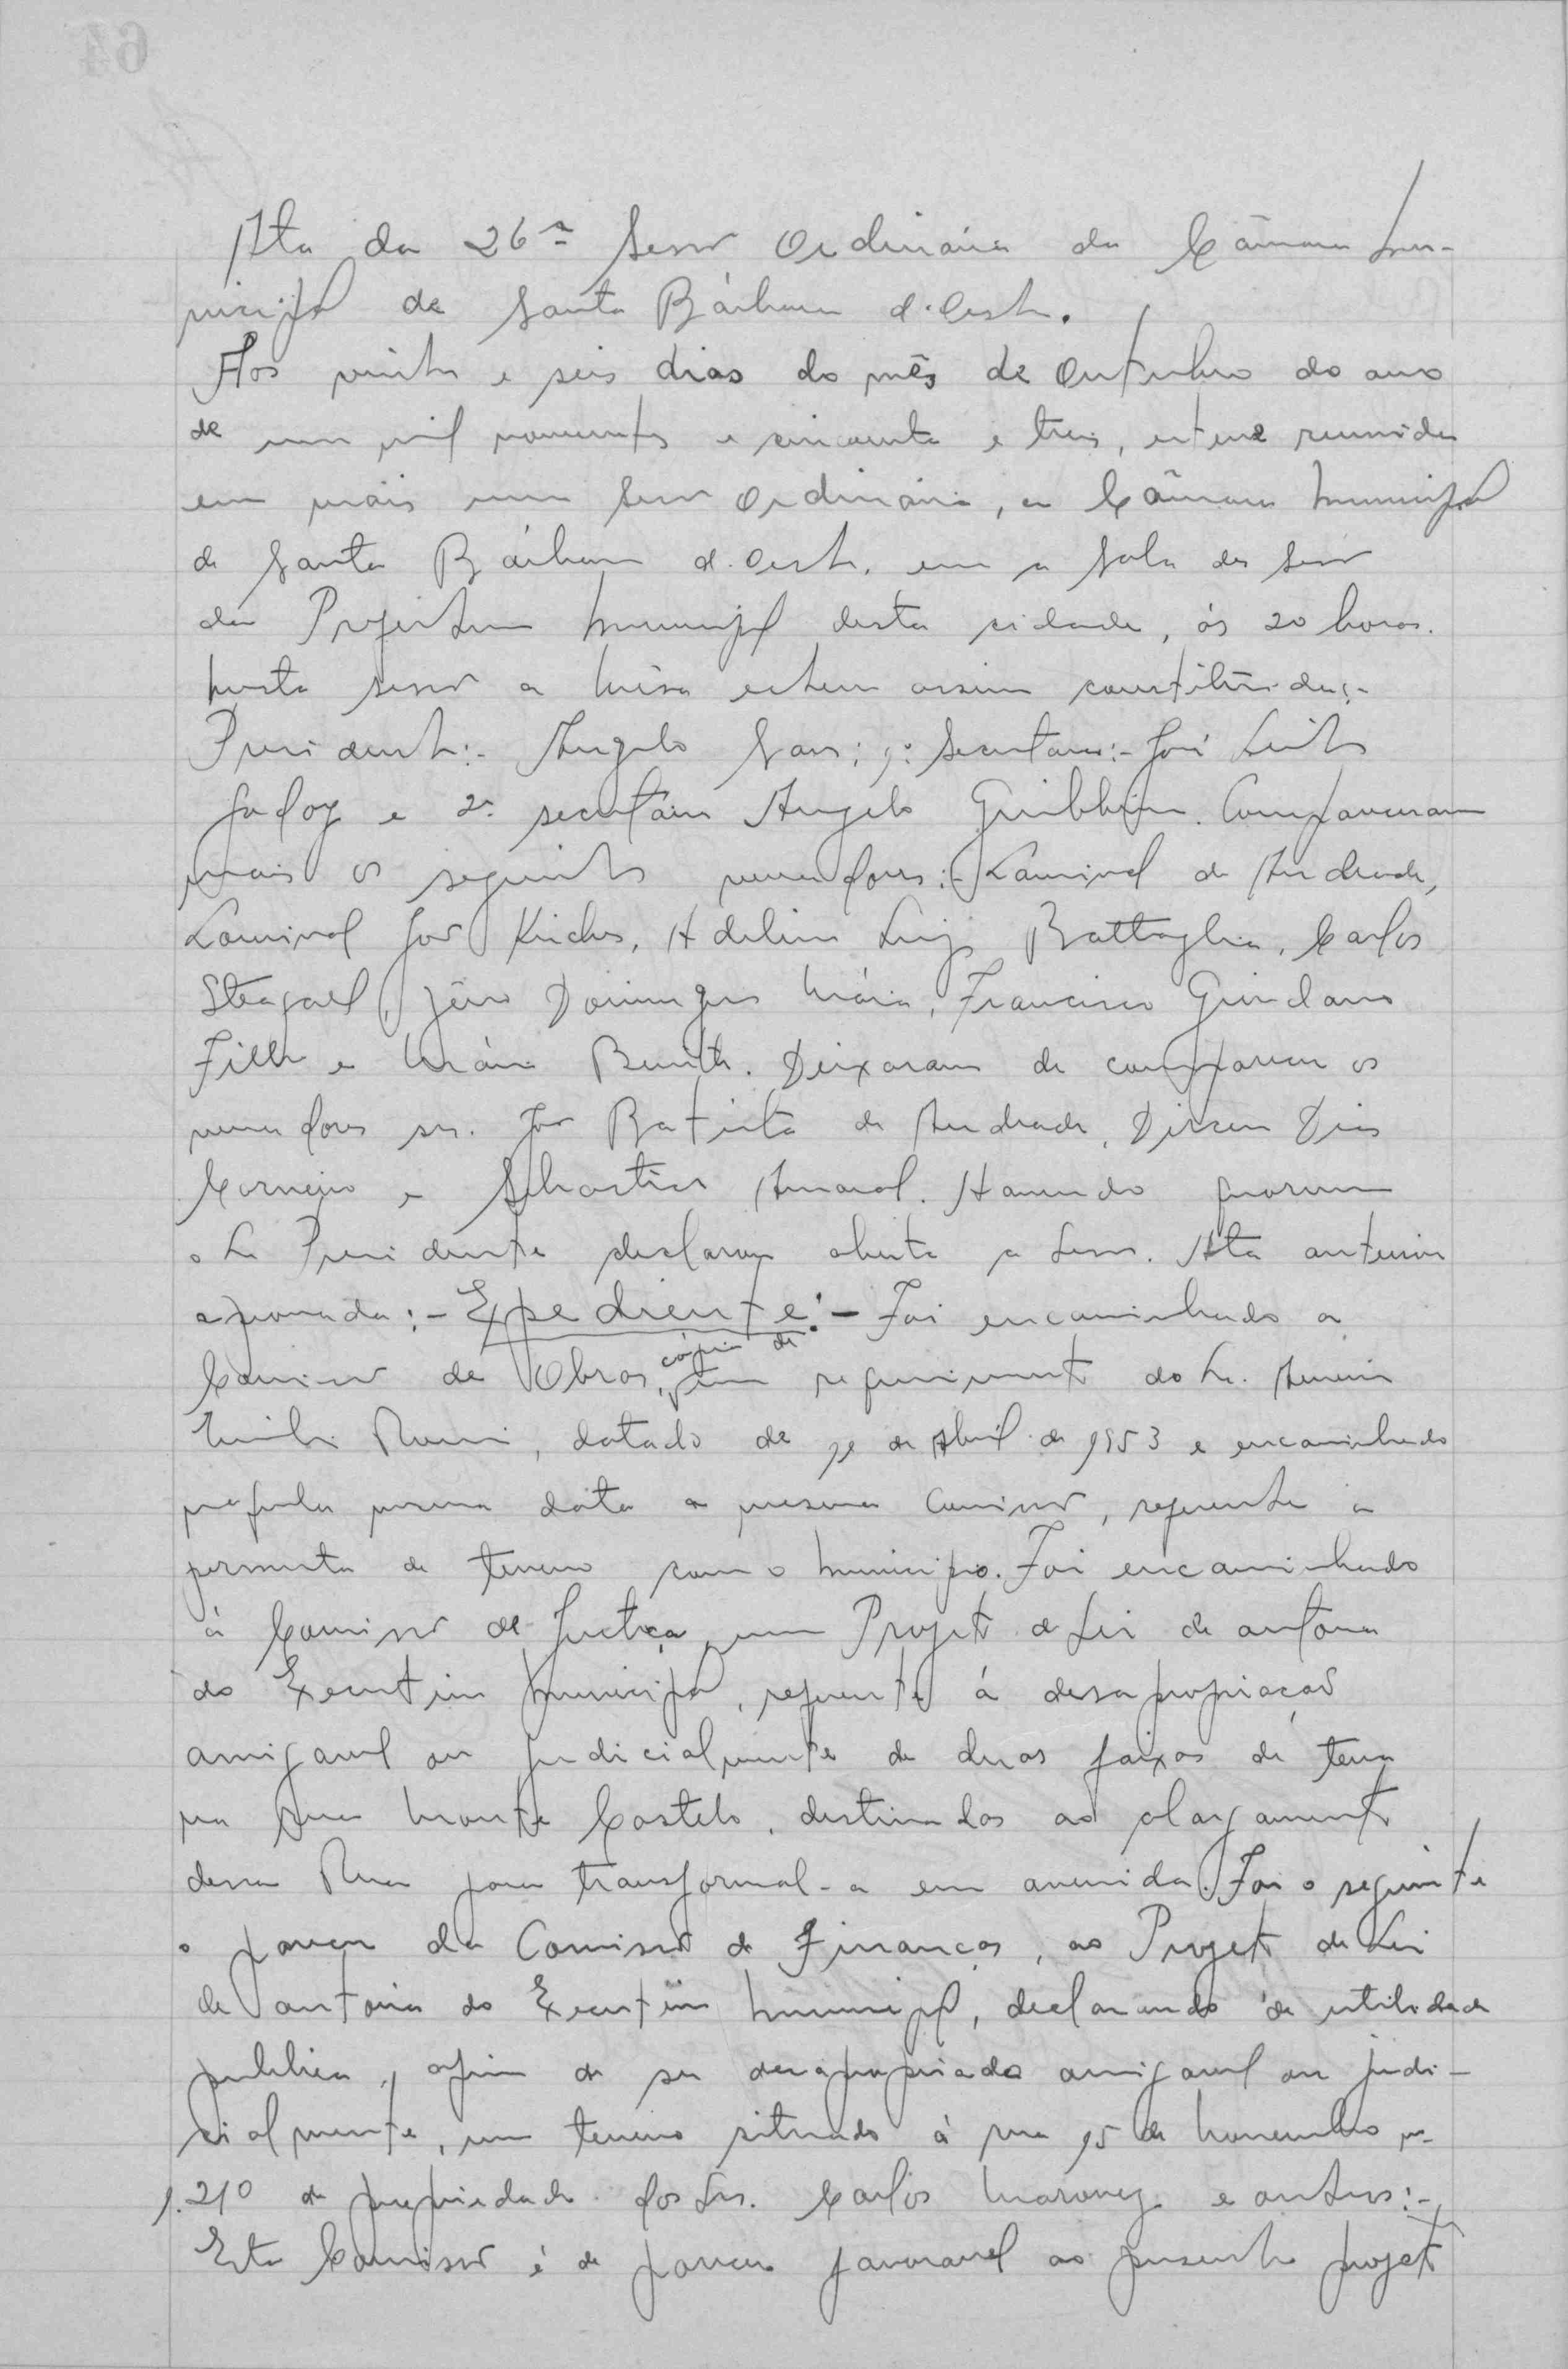 Ata da 26ª Sessão Ordinária da Câmara Mu-
nicipal de Santa Bárbara d'Oeste.
Aos vinte e seis dias do mês de Outubro do ano
de um mil novecentos e cincoenta e tres, esteve reunida
em mais uma Sessão Ordinária, a Câmara Municipal
de Santa Bárbara d'Oeste, em a Sala das Sessões
da Prefeitura Municipal desta cidade, ás 20 horas.
Nesta sessão a Mêsa esteve assim constituida:-
Presidente:- Angelo Sans; 1º Secretario:- José Leite
Godoy e 2º secretário Angelo Guibbin. Compareceram
mais os seguintes vereadores:- Lourival de Andrade,
Lourival José Kiche, Adelino Luiz Battaglia, Carlos
Steagall, Jairo Domingues Mário, Francisco Grindano
Filho e Mário Bento. Deixaram de comparecer os
vereadores srs. José Batista de Andrade, Dirceu Dias
Carneiro e Sebastião Amaral. Havendo quorum
o Sr. Presidente declarou aberta a sessão. Ata anterior
aprovada:- Expediente:- Foi encaminhado a
Comissão de Obras, cópia de um requerimento do Sr.
datado de de Abril de 1953 e encaminhado
naquela mesma data a mesma Comissão, referente a
permuta de terreno com o Município. Foi encaminhado
á Comissão de Justiça, um Projeto de Lei de autoria
do Executivo Municipal, referente á desapropriação
amigavel ou judicialmente de duas faixas de terra
na Rua Monte Castelo, destinadas ao alargamento
dessa Rua para transformal-a em avenida. Foi o seguinte
o parecer da Comissão de Finanças, ao Projeto de Lei
de autoria do Executivo Municipal, declarando de utilidade
publica, afim de ser desapropriado amigavel ou judi-
cialmente, um terreno situado á rua 15 de Novembro nº
1.210 de propriedade dos Srs. Carlos Maronez e outros:-
Esta Comissão é de parecer favoravel ao presente projeto